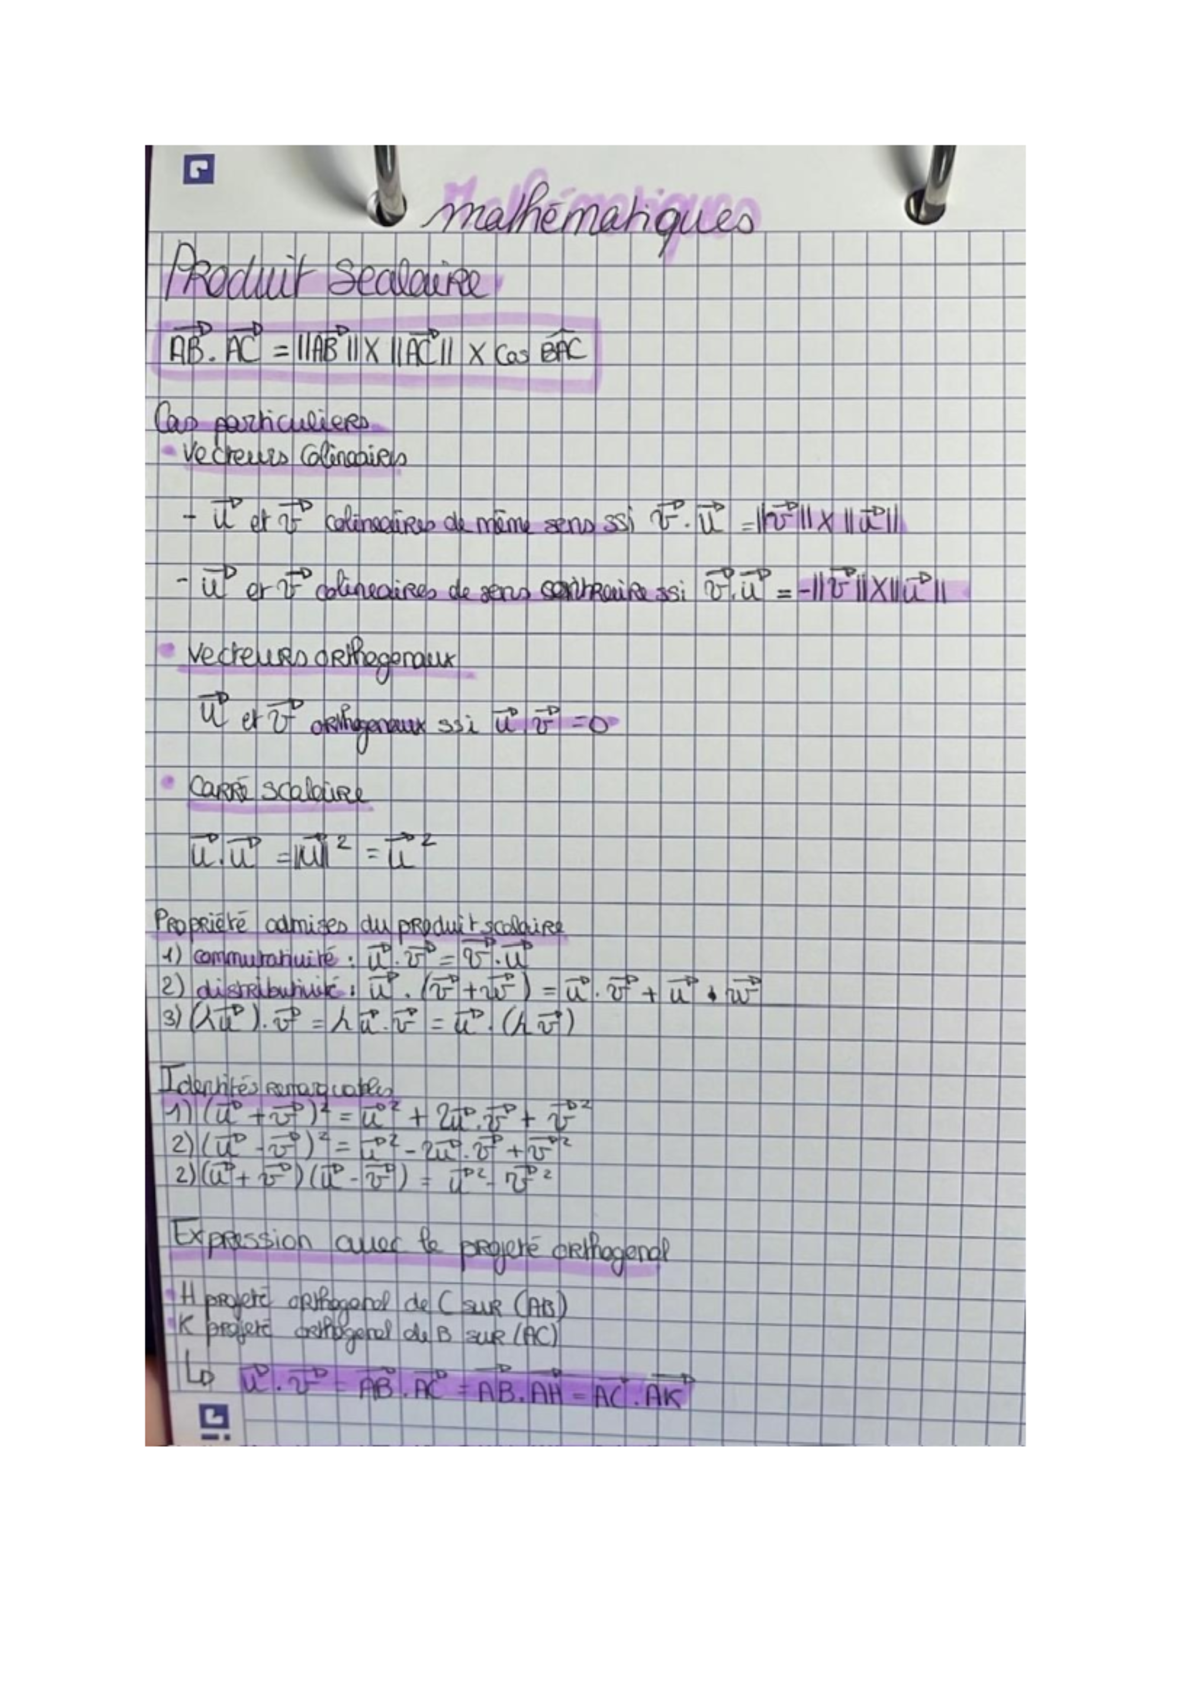 mathématiques
Produit Scalaire
$\overrightarrow{AB} . \overrightarrow{AC} = ||\overrightarrow{AB}|| \times ||\overrightarrow{AC}|| \times \cos \widehat{BAC}$
Cas particuliers
• Vecteurs Colinéaires
- $\vec{u}$ et $\vec{v}$ colinéaires de même sens ssi $\vec{v} . \vec{u} = ||\vec{v}|| \times ||\vec{u}||$
- $\vec{u}$ et $\vec{v}$ colineaires de sens contraire ssi $\vec{v} . \vec{u} = -||\vec{v}|| \times ||\vec{u}||$
• Vecteurs orthogonaux
$\vec{u}$ et $\vec{v}$ orthogonaux ssi $\vec{u} . \vec{v} = 0$
• Carré scalaire
$\vec{u} . \vec{u} = ||\vec{u}||^2 = \vec{u}^2$
Propriété admises du produit scalaire
1) commutativité : $\vec{u} . \vec{v} = \vec{v} . \vec{u}$
2) distributivité : $\vec{u} . (\vec{v} + \vec{w}) = \vec{u} . \vec{v} + \vec{u} . \vec{w}$
3) $(\lambda \vec{u}) . \vec{v} = \lambda \vec{u} . \vec{v} = \vec{u} . (\lambda \vec{v})$
Identités remarquables
1) $(\vec{u} + \vec{v})^2 = \vec{u}^2 + 2\vec{u} . \vec{v} + \vec{v}^2$
2) $(\vec{u} - \vec{v})^2 = \vec{u}^2 - 2\vec{u} . \vec{v} + \vec{v}^2$
2) $(\vec{u} + \vec{v})(\vec{u} - \vec{v}) = \vec{u}^2 - \vec{v}^2$
Expression avec le projeté orthogonal
• H projeté orthogonal de C sur (AB)
• K projeté orthogonal de B sur (AC)
↳ $\vec{u} . \vec{v} = \overrightarrow{AB} . \overrightarrow{AC} = \overrightarrow{AB} . \overrightarrow{AH} = \overrightarrow{AC} . \overrightarrow{AK}$